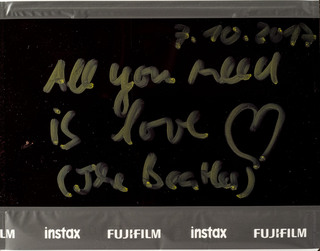 7.10.2017
All you need
is love ♡
(The Beatles)
LM instax FUJIFILM instax FUJIFILM